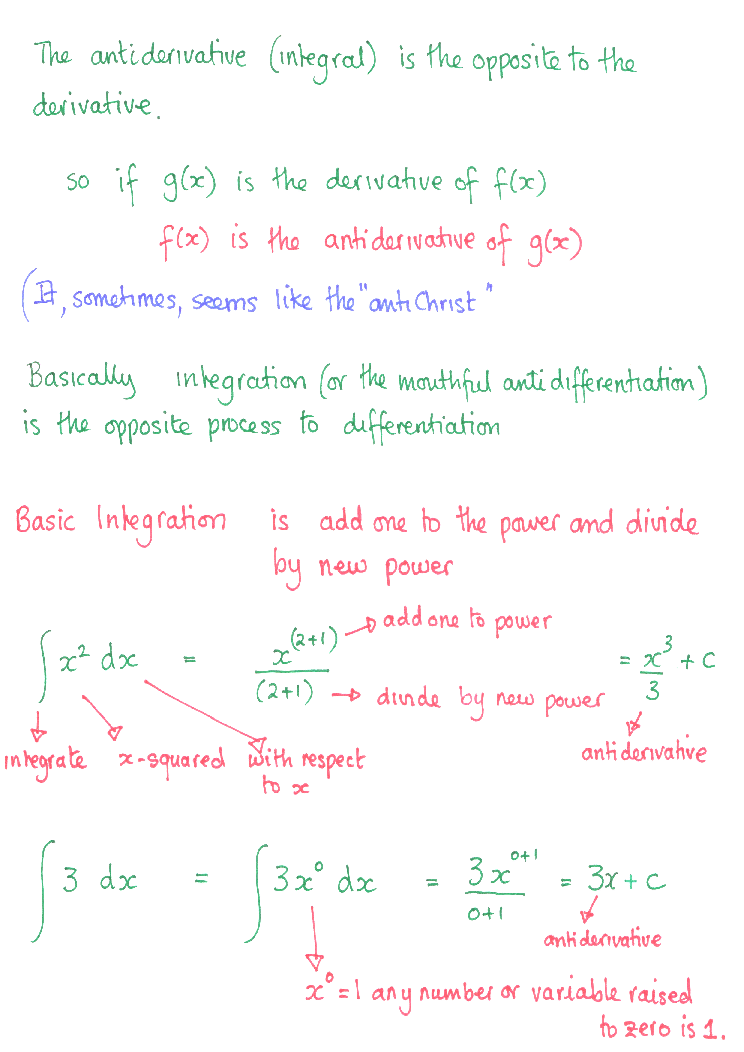 The antiderivative (integral) is the opposite to the
derivative.
so if g(x) is the derivative of f(x)
f(x) is the antiderivative of g(x)
(It, sometimes, seems like the "anti Christ"
Basically integration (or the mouthful anti differentiation)
is the opposite process to differentiation
Basic Integration is add one to the power and divide
by new power
∫ x² dx = x^(2+1) / (2+1) = x³/3 + c
add one to power
divide by new power
integrate x-squared with respect
to x
antiderivative
∫ 3 dx = ∫ 3x⁰ dx = 3x^0+1 / 0+1 = 3x + c
antiderivative
x⁰ = 1 any number or variable raised
to zero is 1.